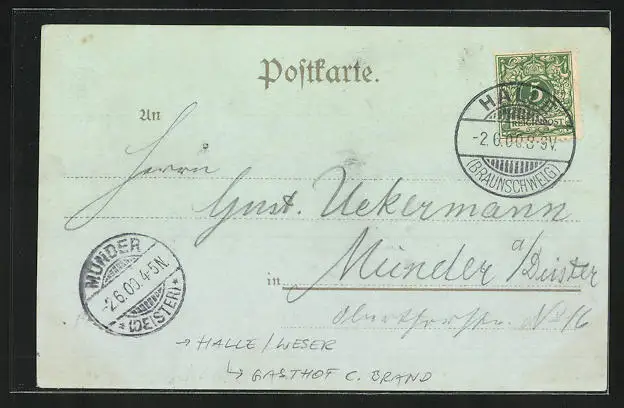 Postkarte.
An
Herrn
Gust. Uekermann
in Münder a/Deister
Oberthorstr. No 16
HALLE
-2.6.00.8-9V.
(BRAUNSCHWEIG)
5
REICHSPOST
MÜNDER
-2.6.00.4-5N.
*(DEISTER)*
→ HALLE / WESER
↳ GASTHOF C. BRAND